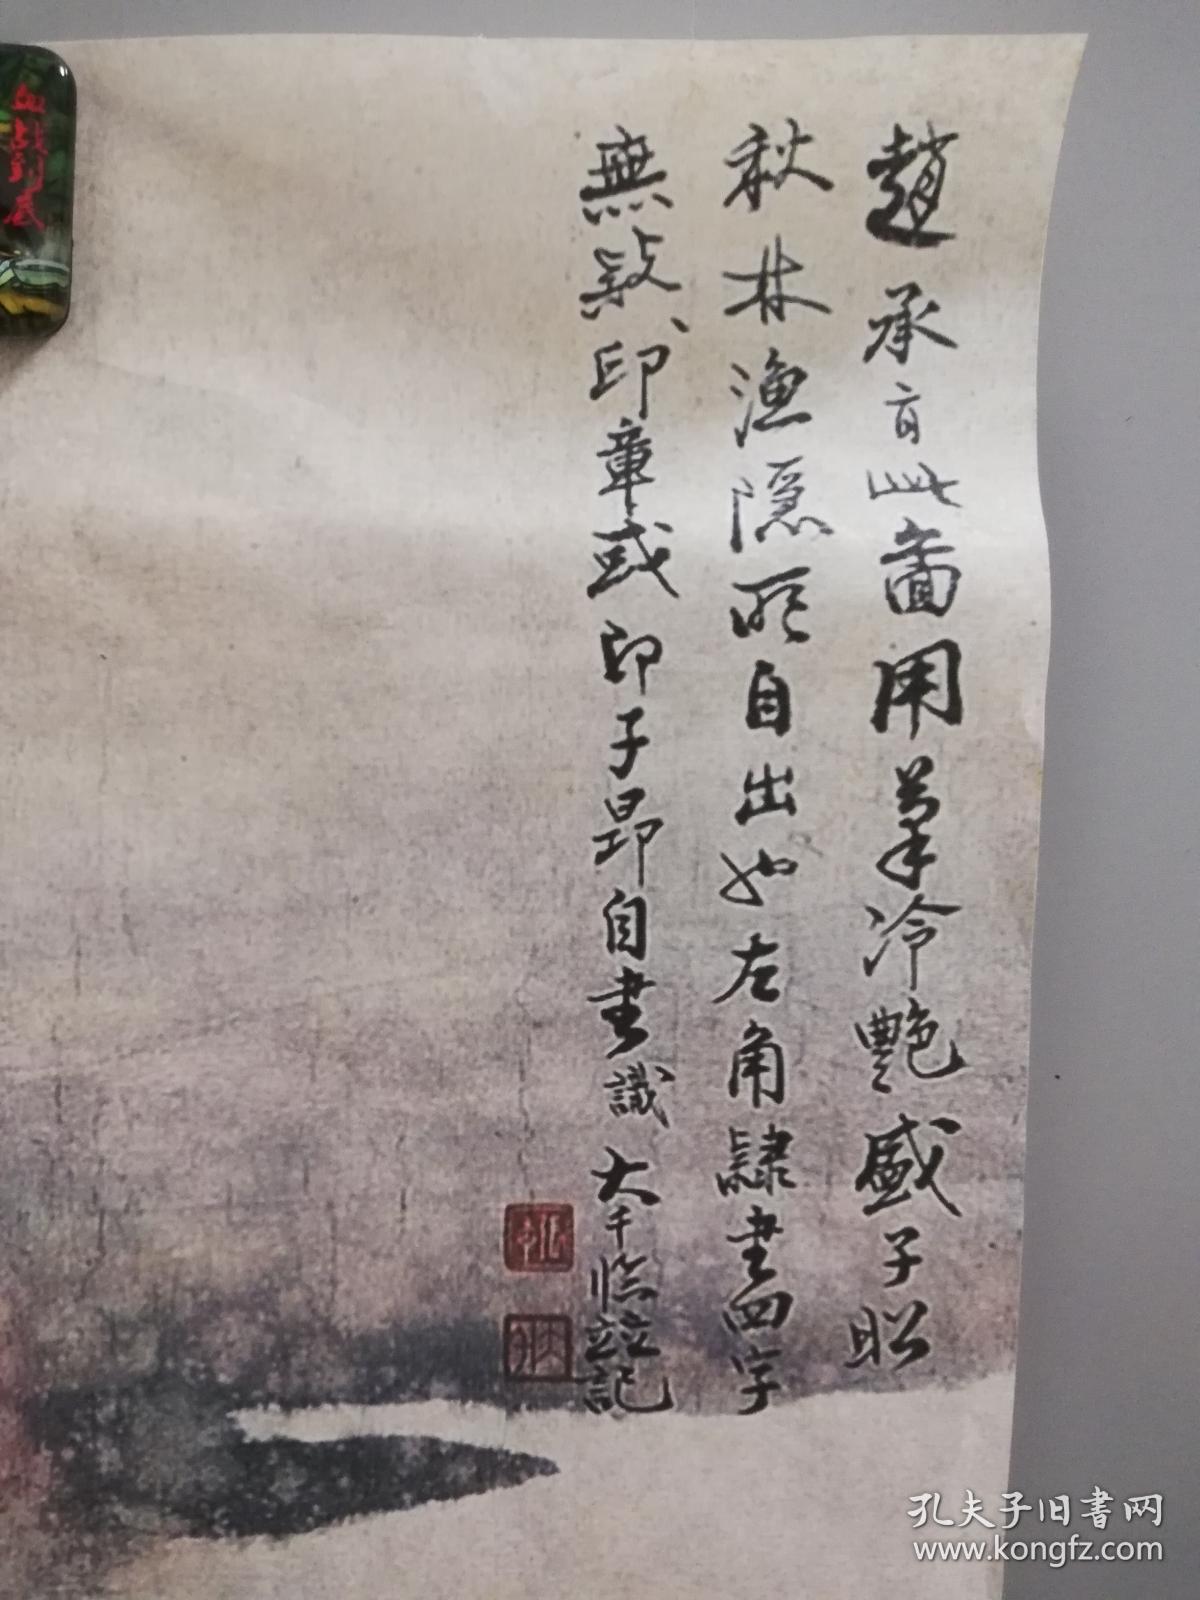 趙承旨此圖用筆冷艷盛子昭
秋林漁隱所自出也左角隸書四字
無款印章或即子昂自書識大千臨並記
血戰到底
孔夫子旧书网
www.kongfz.com